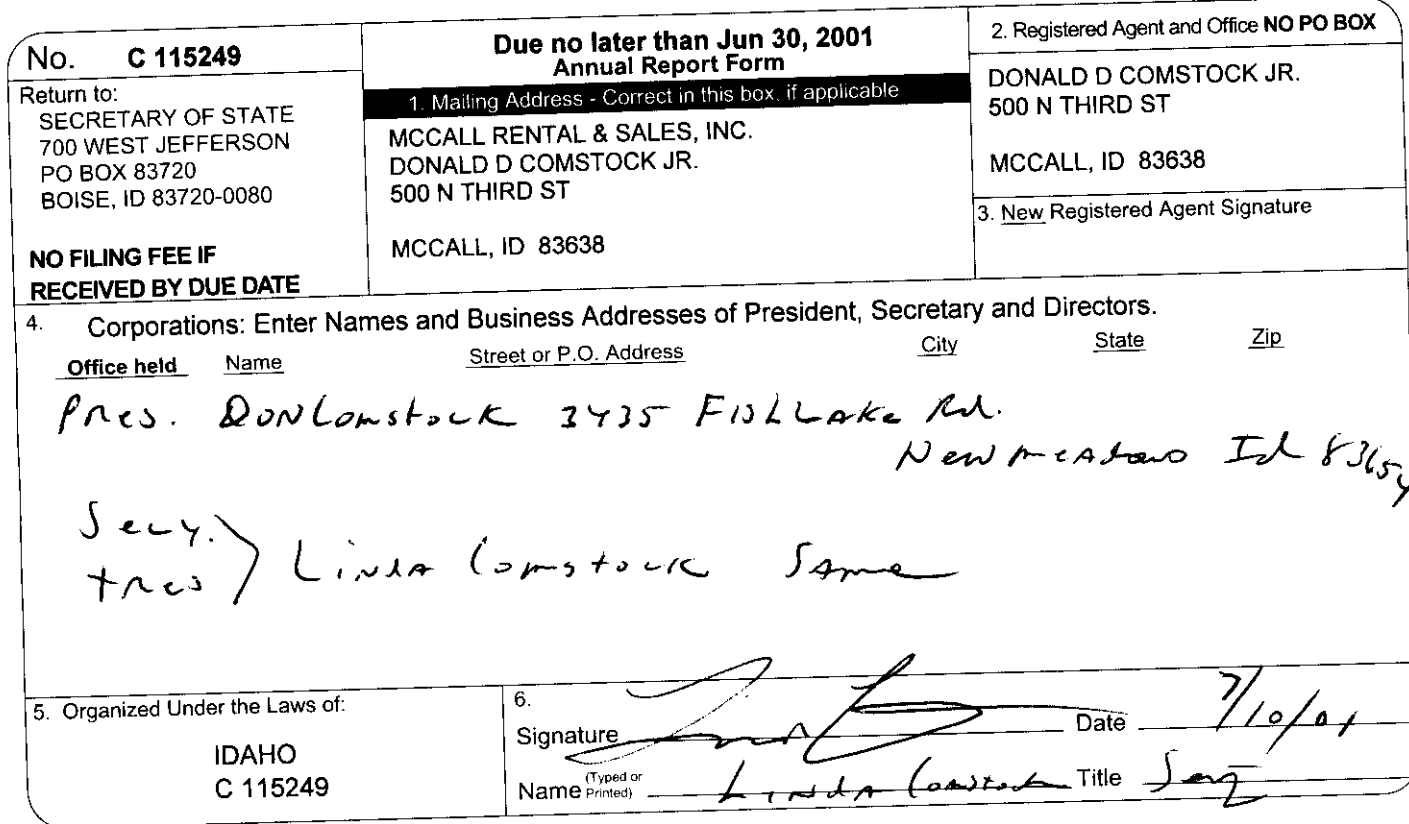 No. C 115249
Return to:
SECRETARY OF STATE
700 WEST JEFFERSON
PO BOX 83720
BOISE, ID 83720-0080
NO FILING FEE IF
RECEIVED BY DUE DATE
Due no later than Jun 30, 2001
Annual Report Form
1. Mailing Address - Correct in this box, if applicable
MCCALL RENTAL & SALES, INC.
DONALD D COMSTOCK JR.
500 N THIRD ST
MCCALL, ID 83638
2. Registered Agent and Office NO PO BOX
DONALD D COMSTOCK JR.
500 N THIRD ST
MCCALL, ID 83638
3. New Registered Agent Signature
4. Corporations: Enter Names and Business Addresses of President, Secretary and Directors.
Office held Name Street or P.O. Address City State Zip
Pres. Don Comstock 3435 Fish Lake Rd.
New Meadows Id 83654
Secy.
tres } Linda Comstock Same
5. Organized Under the Laws of:
IDAHO
C 115249
6.
Signature Date 7/10/01
Name (Typed or Printed) Linda Comstock Title Secy